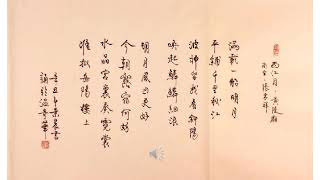 西江月·黃陵廟
南宋·張孝祥
滿載一船明月
平鋪千里秋江
波神留我看斜陽
喚起鱗鱗細浪
明日風回更好
今朝露宿何妨
水晶宮裏奏霓裳
準擬岳陽樓上
辛丑年
於溫哥華